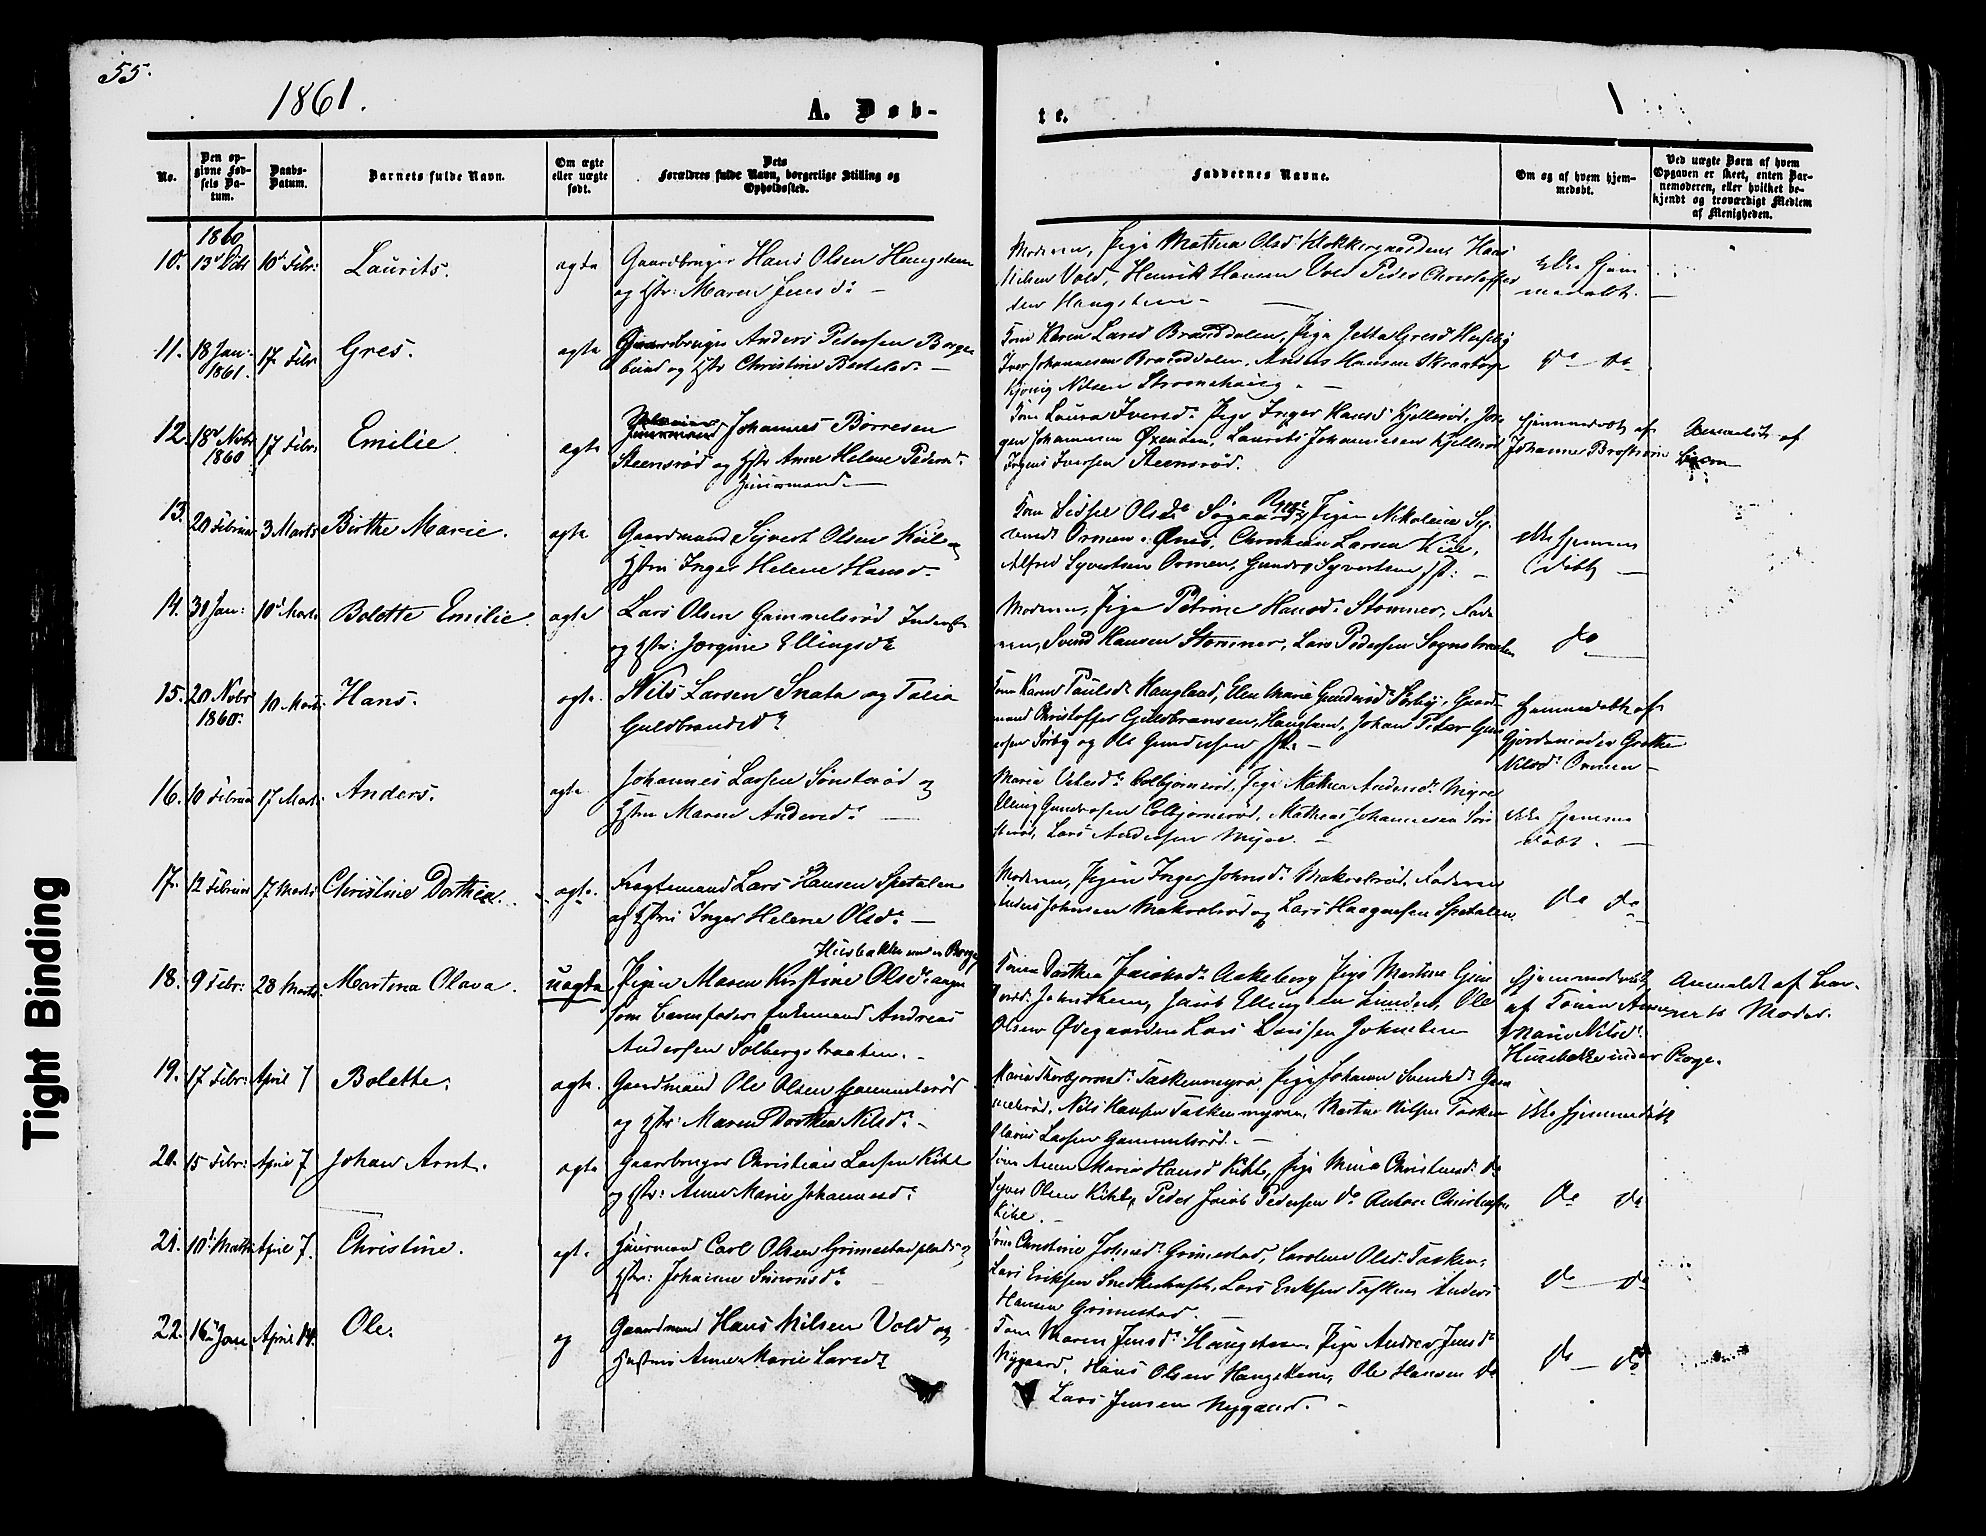 55.
1861.
A. Døb-
te.
No.
Den op-
givne Fød-
sels Da-
tum.
Daabs-
Datum.
Barnets fulde Navn.
Om ægte
eller uægte
født.
Dets
Forældres fulde Navn, borgerlige Stilling og
Opholdssted.
Faddernes Navne.
Om og af hvem hjem-
medøbt.
Ved uægte Børn af hvem
Opgaven er skeet, enten Bar-
nemoderen, eller hvilket be-
kjendt og troværdigt Medlem
af Menigheden.
1860
10. 10d Febr: Laurits. ægte Gaardbruger Hans Olsen Haugsteen
og Hstr: Maren Jensd:
Moderen, Pige Mathea Olsd Klokkergaarden Hans
Nilsen Vold, Henrik Hansen Vold Peder Christoffer
sen Haugsteen
ikke hjem
medøbt.
11. 18 Jan: 17 Febr Gres. ægte Gaardbruger Anders Petersen Borge
1861.
bund og Hstr Christine Bertelsd:
Kone Karen Larsd Branddalen, Pige Jetta Gresd
Iver Johannesen Branddalen, Anders Hansen
Nilsen
do do
12. 18d Novbr 17 Febr Emilie ægte Johannes Børresen
1860
Steensrød og Hstr Anne Helene Peders
Huusmand.
Kone Laura Iversd: Pige Inger Hansd Kjellerød, Jør
gen Johannesen Øxenøen, Laurits Johannesen Kjellerød
Iversen Steensrød.
Hjemmedøbt af
Johanne
Anmeldt af
13. 20 Februar 3 Marts Birthe Marie. ægte Gaardmand Syvert Olsen Kiil og
Hstru Inger Helene Hansd.
Kone Sidsel Olsd: Rygge Pigen Nikoline Sy-
vertsd Ormen, Christian Larsen Kiil,
Alfred Syvertsen Ormen, Gunder Syvertsen
ikke hjemme
døbt
14. 30 Jan: 10d Marts Bolette Emilie. ægte Lars Olsen Gammelsrød Inderst
og Hstr: Jørgine Ellingsd:
Moderen, Pige Petrine Hansd: Stomner, Fade
ren, Svend Hansen Stomner, Lars Pedersen Sognebraaten
do
15. 20 Novbr 10 Marts Hans. ægte. Nils Larsen Snata og Talia
1860.
Guldbrandsd:
Kone Karen Paulsd: Haugland, Elen Marie Gundersd Sørby, Gaard
mand Christoffer Guldbransen, Haugland, Johan Peter Gun
dersen Sørby og Ole Gundersen
Hjemmedøbt af
Gjordemoder Grethe
Nilsd: Ormen
16. 10 Februar 17 Marts Anders. ægte. Johannes Larsen Sønsterød og
Hstru Maren Andersd:
Maria Colbjørnsrød, Pige Mathea Andersd: Myre
Elling Gundersen Colbjørnsrød, Mathias Johannesen Søn
sterød, Lars Andersen Myre.
ikke hjemme
døbt.
17. 12 Februar 17 Marts Christine Dorthea. ægte. Fragtemand Lars Hansen Spetalen
og Hstru Inger Helene Olsd:
Moderen, Pigen Inger Johnsd: Makrelrød, Faderen
Anders Johnsen Makrelrød og Lars Haagensen Spetalen.
do do
Husebakke under Borge
18. 9 Febr: 28 Marts Martina Olava. uægte Pigen Maren Kirstine Olsd: angav
som Barnefader Enkemand Andreas
Andersen Solbergbraaten.
Konen Dorthea Jacobsd: Aakeberg Pige Martine
Jacob Ellingsen Lunden, Ole
Olsen Ødegaarden Lars Larsen
Hjemmedøbt
af Konen Anne
Marie Nilsd:
Husebakke under Borge.
Anmeldt af Bar-
nets Moder.
19. 17 Febr: April 7 Bolette. ægte. Gaardmand Ole Olsen Gammelsrød
og Hstr: Maren Dorthea Nilsd:
Maria Thorbjørnsd: Taskenmyra, Pige Johanne Svendsd: Gam
melsrød, Nils Hansen Taskenmyren, Martin Nilsen Tasken
Olavus Larsen Gammelsrød.
ikke hjemmedøbt
20. 15 Febr: April 7 Johan Arnt. ægte Gaardbruger Christian Larsen Kihl
og Hstr: Anne Marie Johannesd:
Kone Anne Marie Hansd Kihl, Pige Mina Christensd: do
Syver Olsen Kihl, Peder Jacob Pedersen do Anton Christensen
Kihl.
do do
21. 10d Marts April 7. Christine. ægte Huusmand Carl Olsen Grimestadplads og
Hstr: Johanne Simonsd:
Kone Christine Johnsd: Grimestad, Caroline Olsd: Tasken,
Lars Eriksen Snekkerhaugen, Lars Eriksen Tasken Anders
Hansen Grimestad.
do do
22. 16d Jan April 14. Ole. æg Gaardmand Hans Nilsen Vold og
Hustru Anne Marie Larsd:
Kone Maren Jensd: Haugsteen, Pige Andrea Jensd:
Nygaard, Hans Olsen Haugsteen, Ole Hansen do
Lars Jensen Nygaard.
do do
Tight Binding